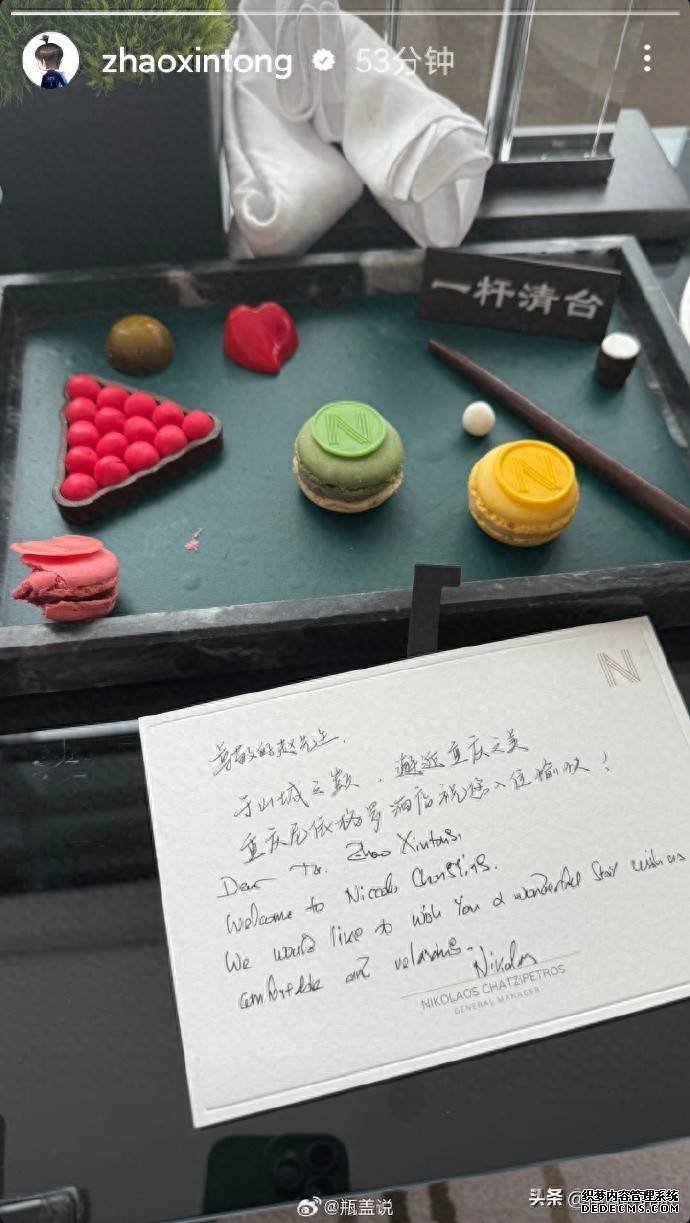 zhaoxintong 53分钟
一杆清台
N
N
N
尊敬的赵先生，
于山城之巅，邂逅重庆之美
重庆尼依格罗酒店祝您入住愉快！
Dear Mr. Zhao Xintong,
Welcome to Niccolo Chongqing.
We would like to wish you a wonderful stay with us
comfortable and relaxing.
Nikolas
NIKOLAOS CHATZIPETROS
GENERAL MANAGER
@瓶盖说
头条
织梦内容管理系统
DEDECMS.COM